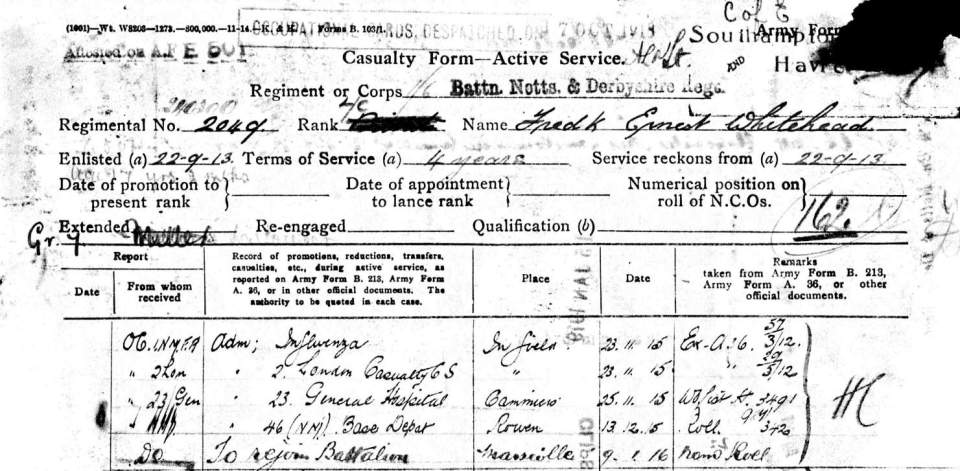 (1001)—Wt. W8206—1273.—800,000.—11-14. Forms B. 103/1.
OCCUPATIONAL CARDS DESPATCHED ON 7 OCT 191
Col E
Southampton
AND
Havre
Army Form
Casualty Form—Active Service.
Regiment or Corps 1/6 Battn. Notts. & Derbyshire Regt.
Regimental No. 2049 Rank L/C Name Fredk Ernest Whitehead
Enlisted (a) 22-9-13. Terms of Service (a) 4 years Service reckons from (a) 22-9-13.
Date of promotion to present rank Date of appointment to lance rank Numerical position on roll of N.C.Os.
162.
Extended Re-engaged Qualification (b)
Gr. 7
Report
Date
From whom received
Record of promotions, reductions, transfers, casualties, etc., during active service, as reported on Army Form B. 213, Army Form A. 36, or in other official documents. The authority to be quoted in each case.
Place
Date
Remarks taken from Army Form B. 213, Army Form A. 36, or other official documents.
Adm; Influenza In field 23. 11. 15 Ex-A36. 57 3/12.
" 2 Lon " 2. London Casualty C S " 23. 11. 15 " 3/12
" 23 Gen " 23. General Hospital 25. 11. 15 3491
46 (NM). Base Depot Rouen 13. 12. 15 Roll.
Do To rejoin Battalion Marseille 9. 1. 16 Nom Roll
19 JAN 1916